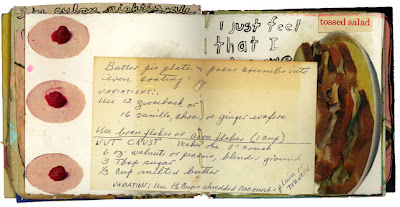 I just feel
that I
tossed salad
Butter pie plate & press crumbs into
even coating
VARIATIONS:
Use 12 zwieback or
16 vanilla, choc, or ginger wafers
Use bran flakes or corn flakes (1 cup)
NUT CRUST Makes one 8" crust
6 oz walnuts or pecans, blender ground
3 Tbsp sugar
1/3 cup melted butter
VARIATION: Use 1 1/2 cups shredded coconut - plain or
TOASTED